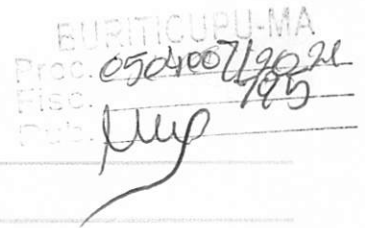 BURITICUPU-MA
Proc. 0504007/2021
Flsc. 795
Rub.